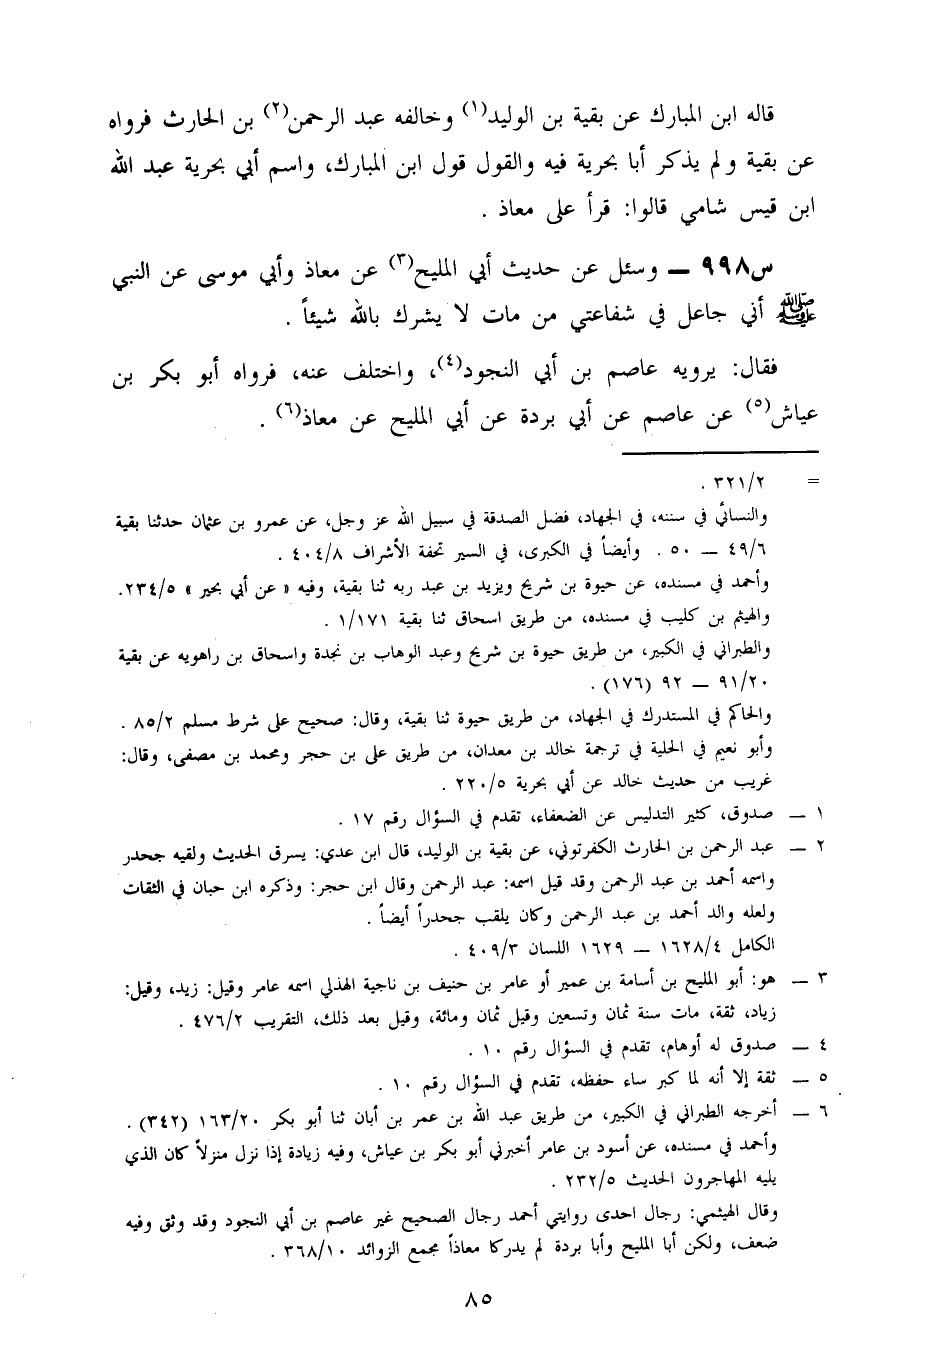 قاله ابن المبارك عن بقية بن الوليد(١) وخالفه عبد الرحمن(٢) بن الحارث فرواه
عن بقية ولم يذكر أبا بحرية فيه والقول قول ابن المبارك، واسم أبي بحرية عبد الله
ابن قيس شامي قالوا: قرأ على معاذ .
س٩٩٨ – وسئل عن حديث أبي المليح(٣) عن معاذ وأبي موسى عن النبي
ﷺ أني جاعل في شفاعتي من مات لا يشرك بالله شيئاً .
فقال: يرويه عاصم بن أبي النجود(٤)، واختلف عنه، فرواه أبو بكر بن
عياش(٥) عن عاصم عن أبي بردة عن أبي المليح عن معاذ(٦) .
= ٣٢١/٢ .
والنسائي في سننه، في الجهاد، فضل الصدقة في سبيل الله عز وجل، عن عمرو بن عثمان حدثنا بقية
٤٩/٦ – ٥٠ . وأيضاً في الكبرى، في السير تحفة الأشراف ٤٠٤/٨ .
وأحمد في مسنده، عن حيوة بن شريح ويزيد بن عبد ربه ثنا بقية، وفيه « عن أبي بحير » ٢٣٤/٥.
والهيثم بن كليب في مسنده، من طريق اسحاق ثنا بقية ١/١٧١ .
والطبراني في الكبير، من طريق حيوة بن شريح وعبد الوهاب بن نجدة واسحاق بن راهويه عن بقية
٩١/٢٠ – ٩٢ (١٧٦) .
والحاكم في المستدرك في الجهاد، من طريق حيوة ثنا بقية، وقال: صحيح على شرط مسلم ٨٥/٢ .
وأبو نعيم في الحلية في ترجمة خالد بن معدان، من طريق علي بن حجر ومحمد بن مصفى، وقال:
غريب من حديث خالد عن أبي بحرية ٢٢٠/٥ .
١ – صدوق، كثير التدليس عن الضعفاء، تقدم في السؤال رقم ١٧ .
٢ – عبد الرحمن بن الحارث الكفرتوني، عن بقية بن الوليد، قال ابن عدي: يسرق الحديث ولقيه جحدر
واسمه أحمد بن عبد الرحمن وقد قيل اسمه: عبد الرحمن وقال ابن حجر: وذكره ابن حبان في الثقات
ولعله والد أحمد بن عبد الرحمن وكان يلقب جحدراً أيضاً .
الكامل ١٦٢٨/٤ – ١٦٢٩ اللسان ٤٠٩/٣ .
٣ – هو: أبو المليح بن أسامة بن عمير أو عامر بن حنيف بن ناجية الهذلي اسمه عامر وقيل: زيد، وقيل:
زياد، ثقة، مات سنة ثمان وتسعين وقيل ثمان ومائة، وقيل بعد ذلك، التقريب ٤٧٦/٢ .
٤ – صدوق له أوهام، تقدم في السؤال رقم ١٠ .
٥ – ثقة إلا أنه لما كبر ساء حفظه، تقدم في السؤال رقم ١٠ .
٦ – أخرجه الطبراني في الكبير، من طريق عبد الله بن عمر بن أبان ثنا أبو بكر ١٦٣/٢٠ (٣٤٢) .
وأحمد في مسنده، عن أسود بن عامر أخبرني أبو بكر بن عياش، وفيه زيادة إذا نزل منزلاً كان الذي
يليه المهاجرون الحديث ٢٣٢/٥ .
وقال الهيثمي: رجال احدى روايتي أحمد رجال الصحيح غير عاصم بن أبي النجود وقد وثق وفيه
ضعف، ولكن أبا المليح وأبا بردة لم يدركا معاذاً مجمع الزوائد ٣٦٨/١٠ .
٨٥